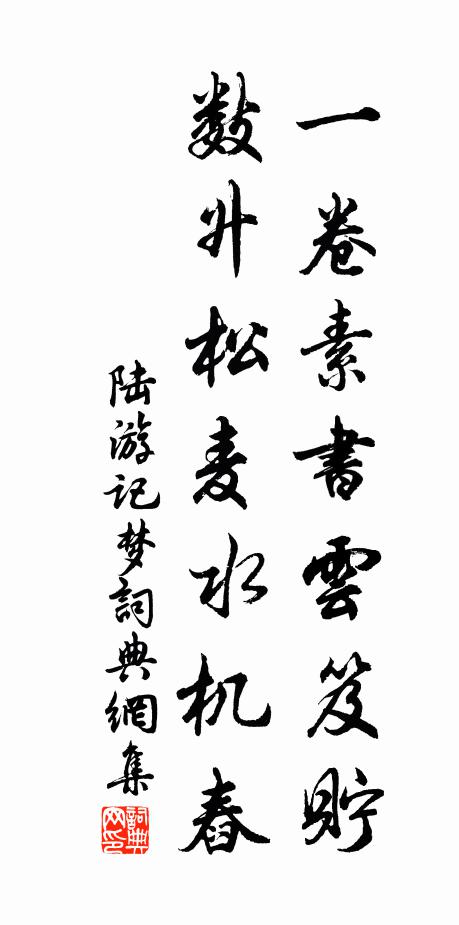 一卷素書雲笈貯
数升松麦水机舂
陆游记梦詞典網集
詞典网印